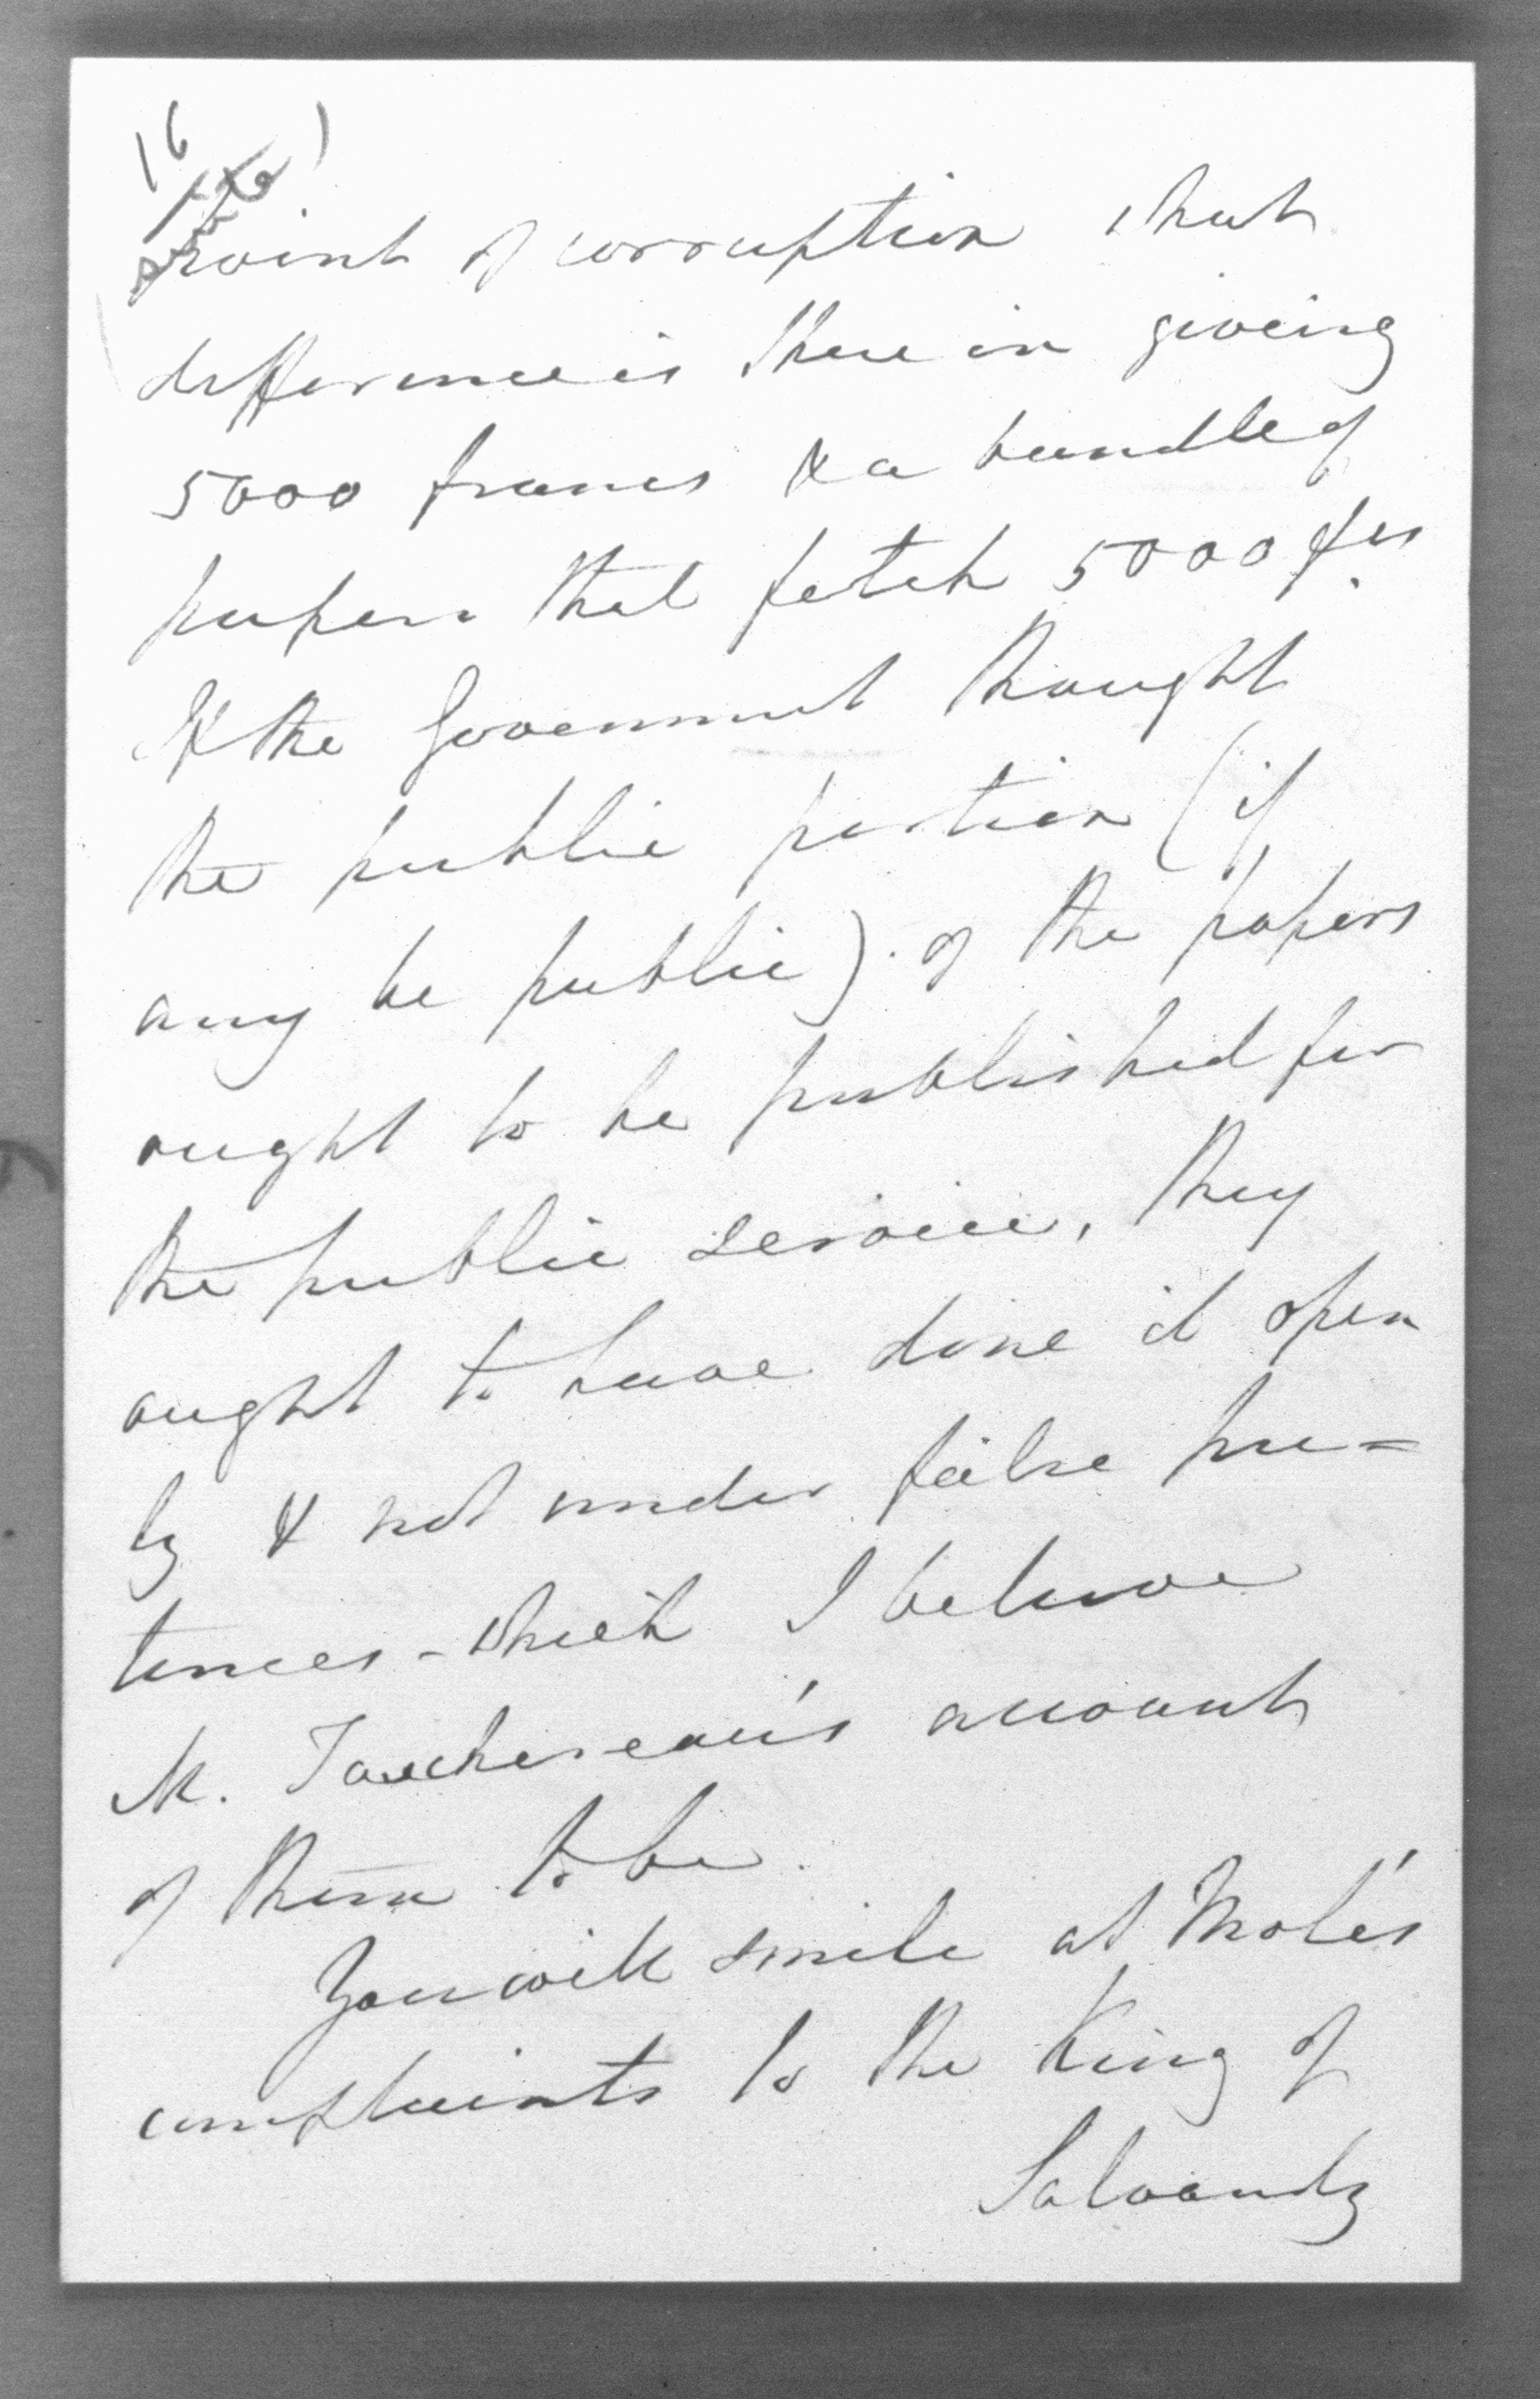 16
(suite)
point of corruption what
difference is there in giving
5000 francs & a bundle of
papers that fetch 5000 frs.
If the Government thought
the public portion (if
any be public) of the papers
ought to be published for
the public service, they
ought to have done it open
ly & not under false pre=
tences - which I believe
M. Taschereau's account
of them to be.
You will smile at Molé's
complaints to the King of
Salvandy